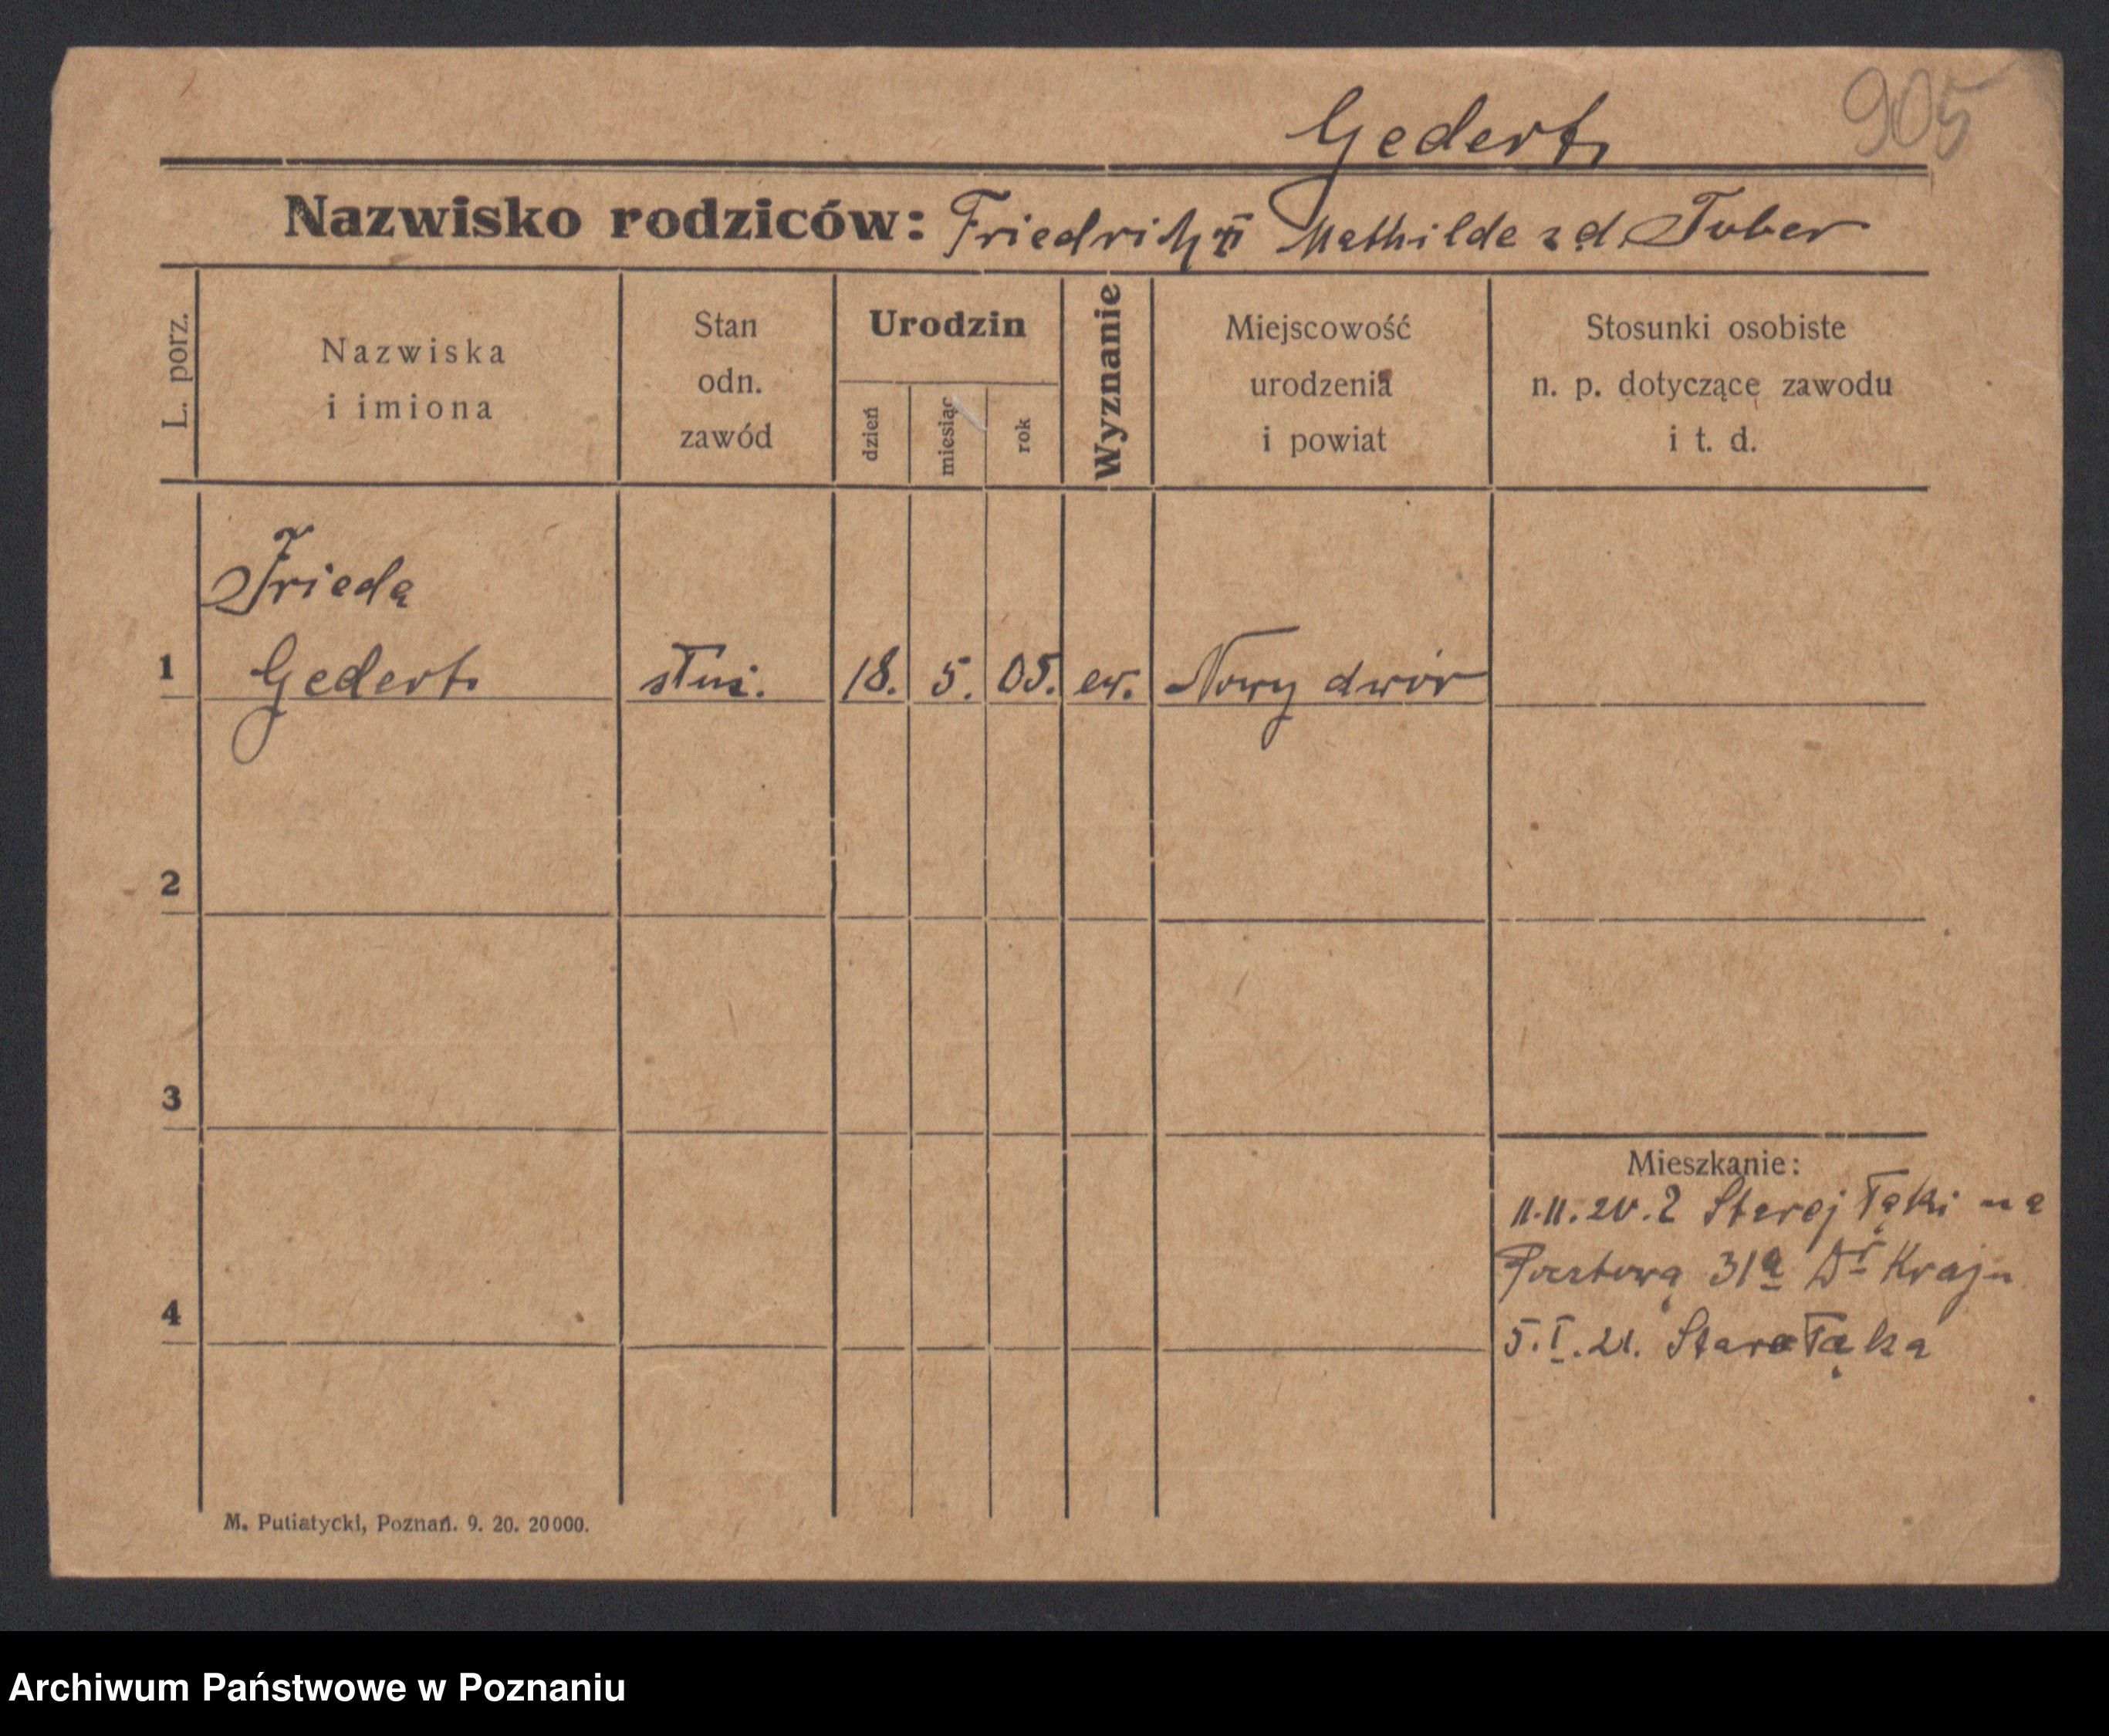 905
Gedert
Nazwisko rodziców: Friedrich Mathilde zd. Tuber
L. porz.
Nazwiska
i imiona
Stan
odn.
zawód
Urodzin
dzień
miesiąc
rok
Wyznanie
Miejscowość
urodzenia
i powiat
Stosunki osobiste
n. p. dotyczące zawodu
i t. d.
Frieda
1 Gedert służ. 18. 5. 05. ew. Nowy dwór
2
3
4
Mieszkanie:
11.11.20. Z Starej Łąki na
Pocztową 31a Dr Kraju
5.I.21. Stara Łąka
M. Putiatycki, Poznań. 9. 20. 20000.
Archiwum Państwowe w Poznaniu